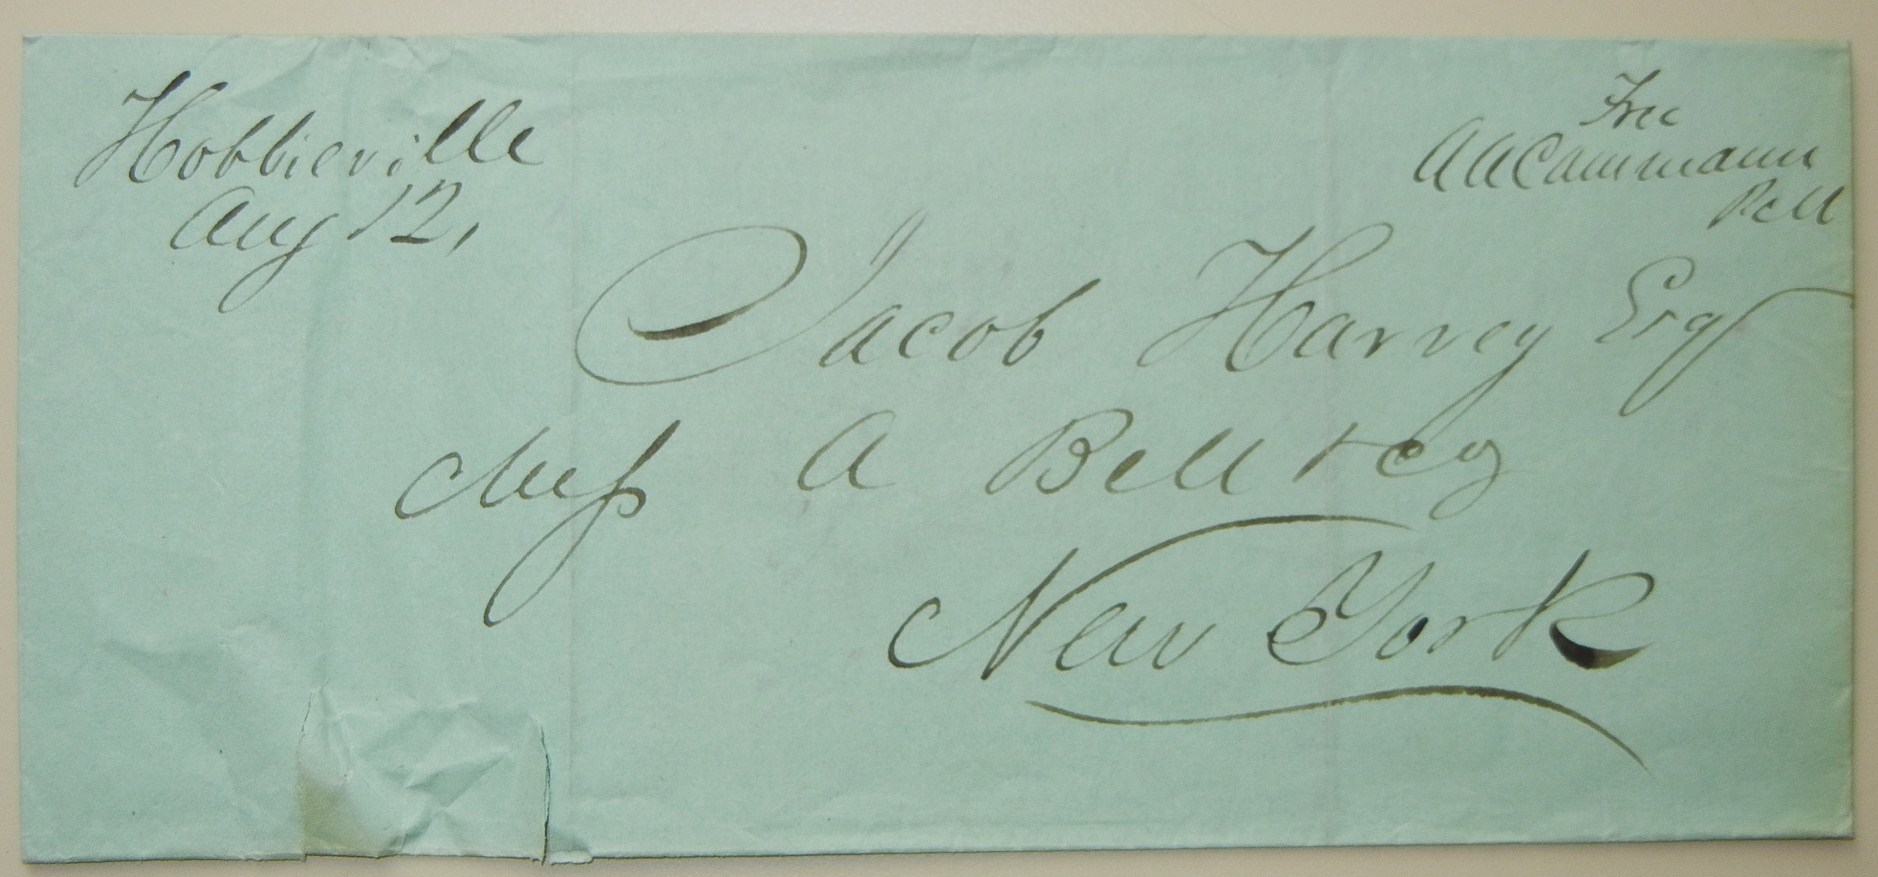 Hobbieville
Aug 12,
Free
A A Cammann
P M
Jacob Harvey Esq
Mess A Bell & Co
New York